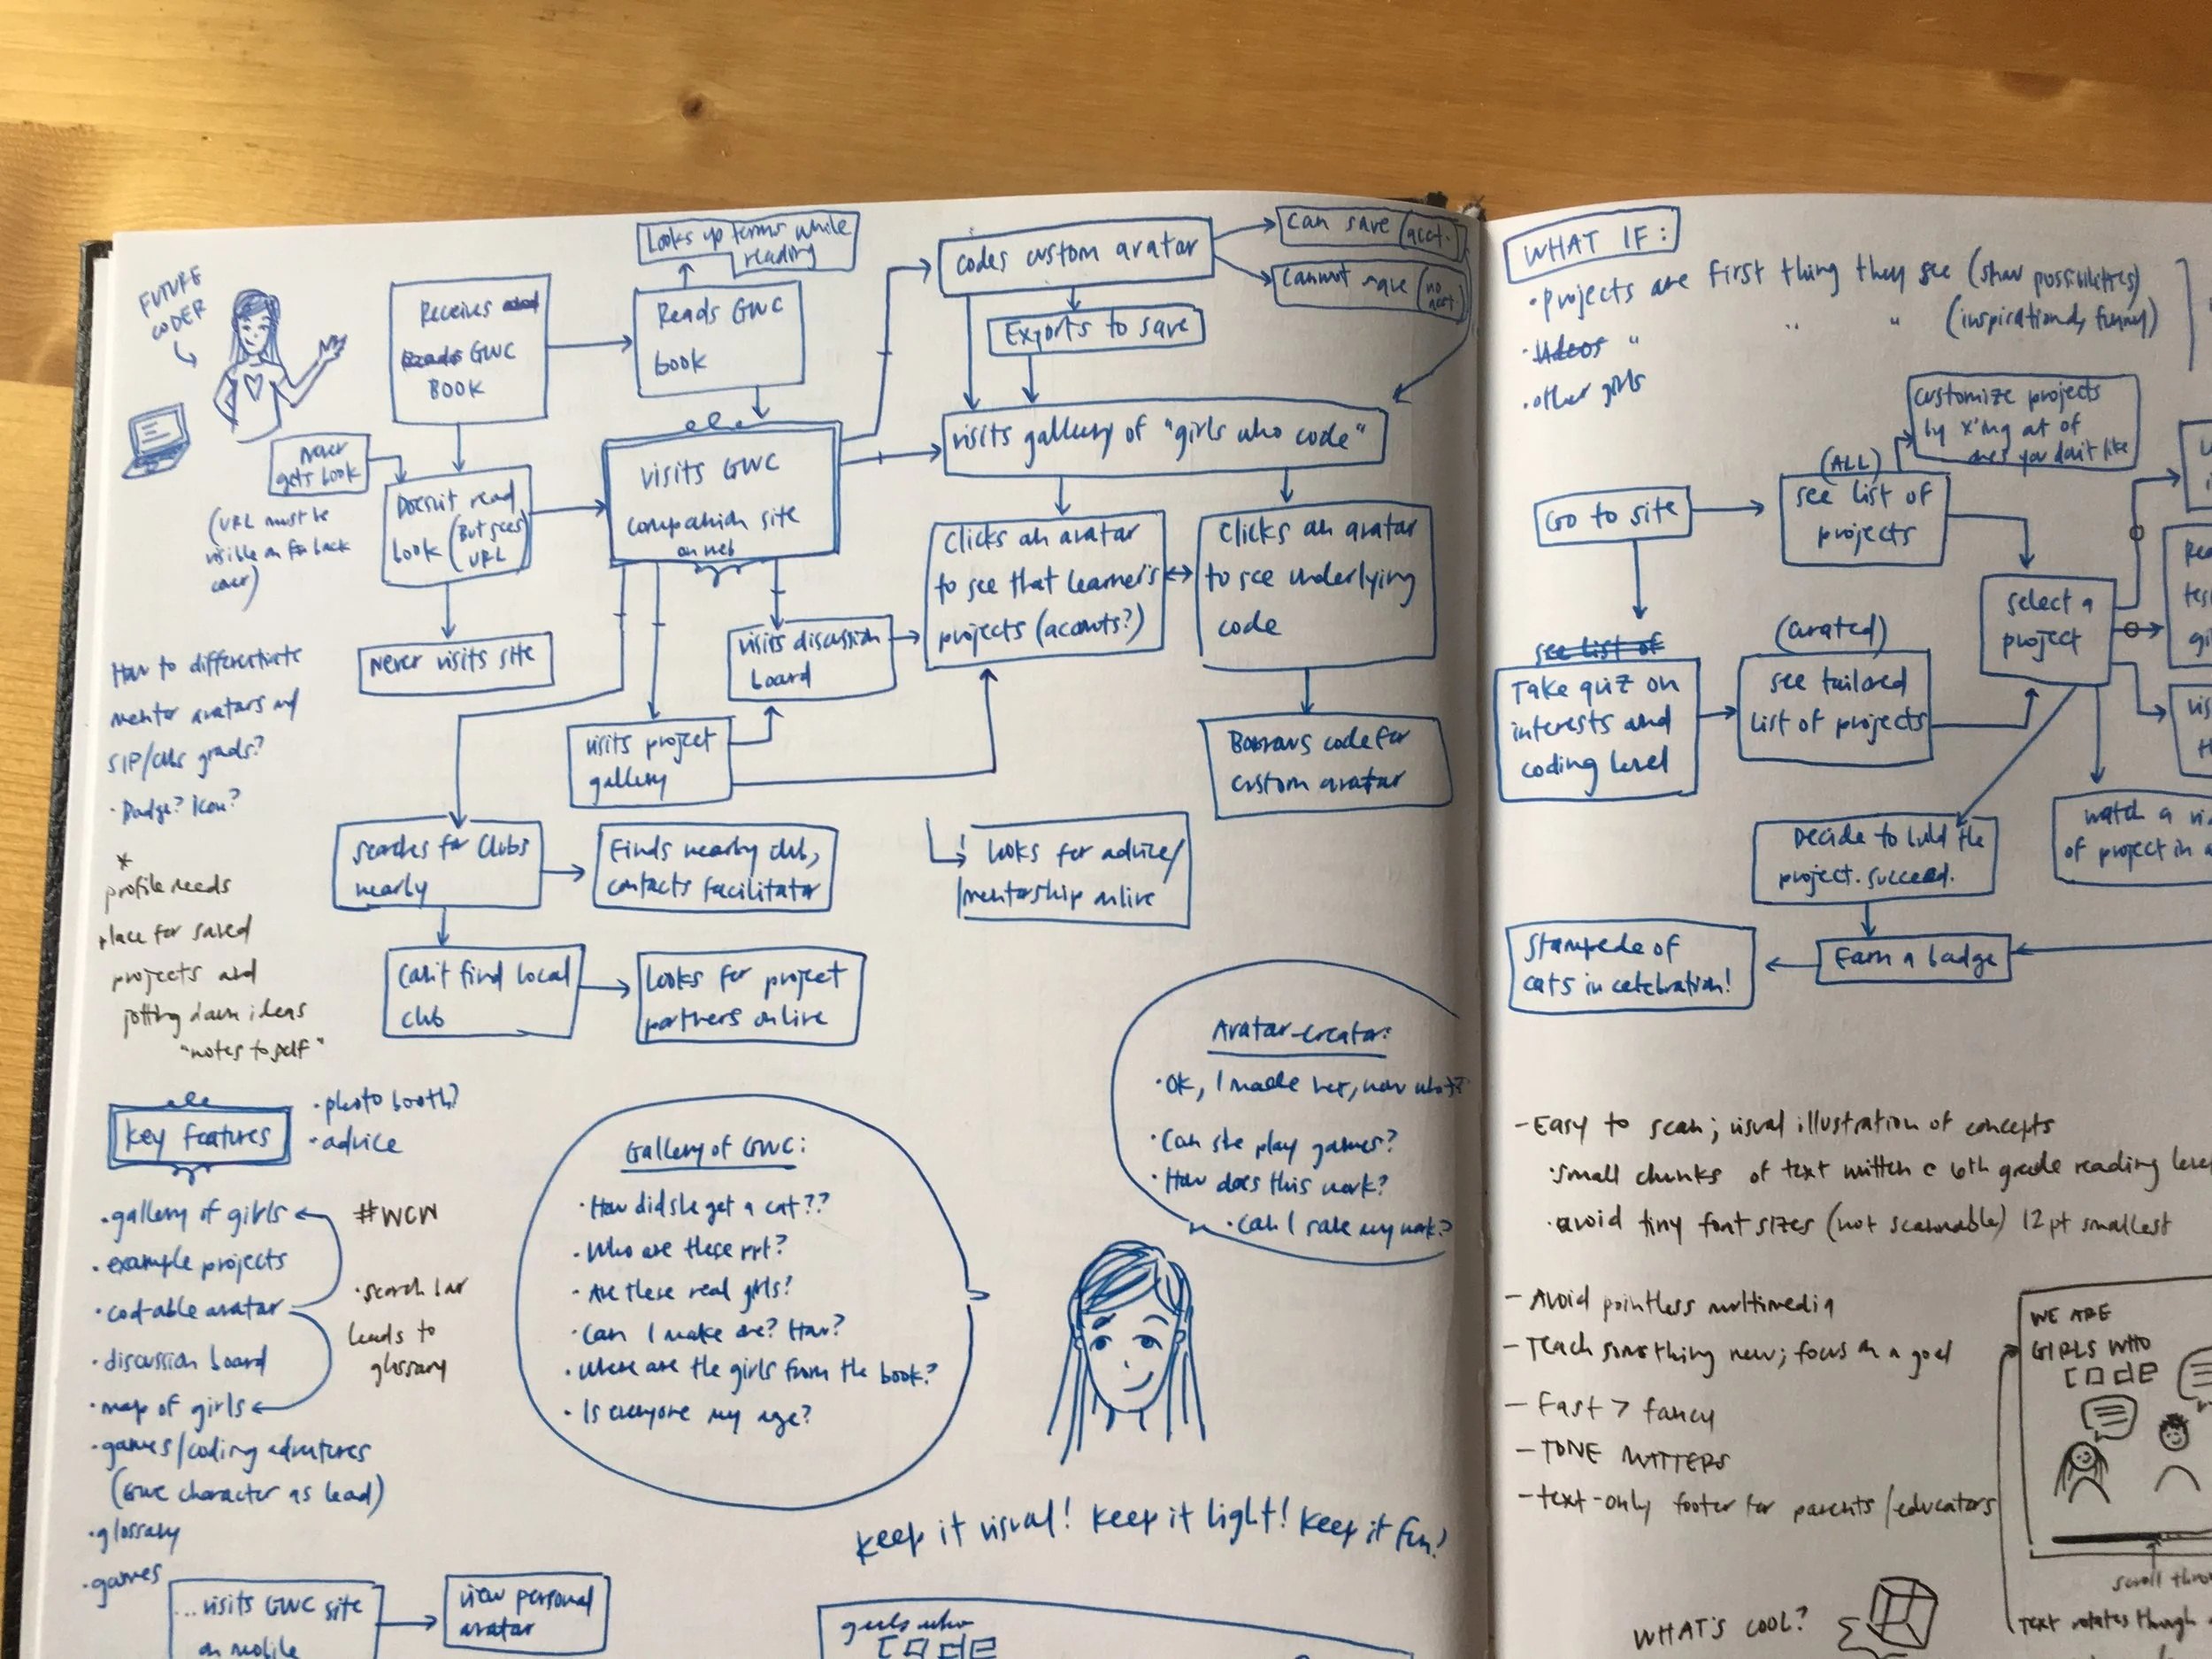 FUTURE
CODER
Receives
GWC
BOOK
Looks up terms while
reading
Reads GWC
book
never
gets book
Doesn't read
book (But sees
URL)
(URL must be
visible on
back
cover)
never visits site
visits GWC
companion site
on web
codes custom avatar
can save (acct.)
cannot save (no
acct.)
Exports to save
visits gallery of "girls who code"
Clicks an avatar
to see that learner's
projects (accounts?)
Clicks an avatar
to see underlying
code
Borrows code for
custom avatar
visits discussion
board
visits project
gallery
looks for advice/
mentorship online
searches for clubs
nearby
Finds nearby club,
contacts facilitator
Can't find local
club
Looks for project
partners online
How to differentiate
mentor avatars and
SIP/clubs grads?
· Badge? Icon?
*
profile needs
place for saved
projects and
jotting down ideas
"notes to self"
key features
· photo booth?
· advice
· gallery of girls
· example projects
· code-able avatar
· discussion board
· map of girls
· games/coding adventures
(GWC character as lead)
· glossary
· games
#WCW
· search bar
leads to
glossary
Gallery of GWC:
· How did she get a cat??
· Who are these ppl?
· Are these real girls?
· Can I make one? How?
· Where are the girls from the book?
· Is everyone my age?
Avatar-creator:
· OK, I made her, now what?
· Can she play games?
· How does this work?
· Can I save my work?
keep it visual! keep it light! keep it fun!
...visits GWC site
on mobile
view personal
avatar
girls who
code
WHAT IF:
· projects are first thing they see (show possibilities)
· videos " " " (inspirational, funny)
· other girls
Go to site
(ALL)
see list of
projects
customize projects
by x'ing out of
ones you don't like
see list of
Take quiz on
interests and
coding level
(curated)
see tailored
list of projects
select a
project
Decide to build the
project. succeed.
watch a
of project in
Earn a badge
Stampede of
cats in celebration!
- Easy to scan; visual illustration of concepts
· small chunks of text written @ 6th grade reading level
· avoid tiny font sizes (not scannable) 12pt smallest
- Avoid pointless multimedia
- Teach something new; focus on a goal
- Fast > fancy
- TONE MATTERS
- text-only footer for parents/educators
WE ARE
GIRLS WHO
CODE
scroll
text rotates through
WHAT'S COOL?